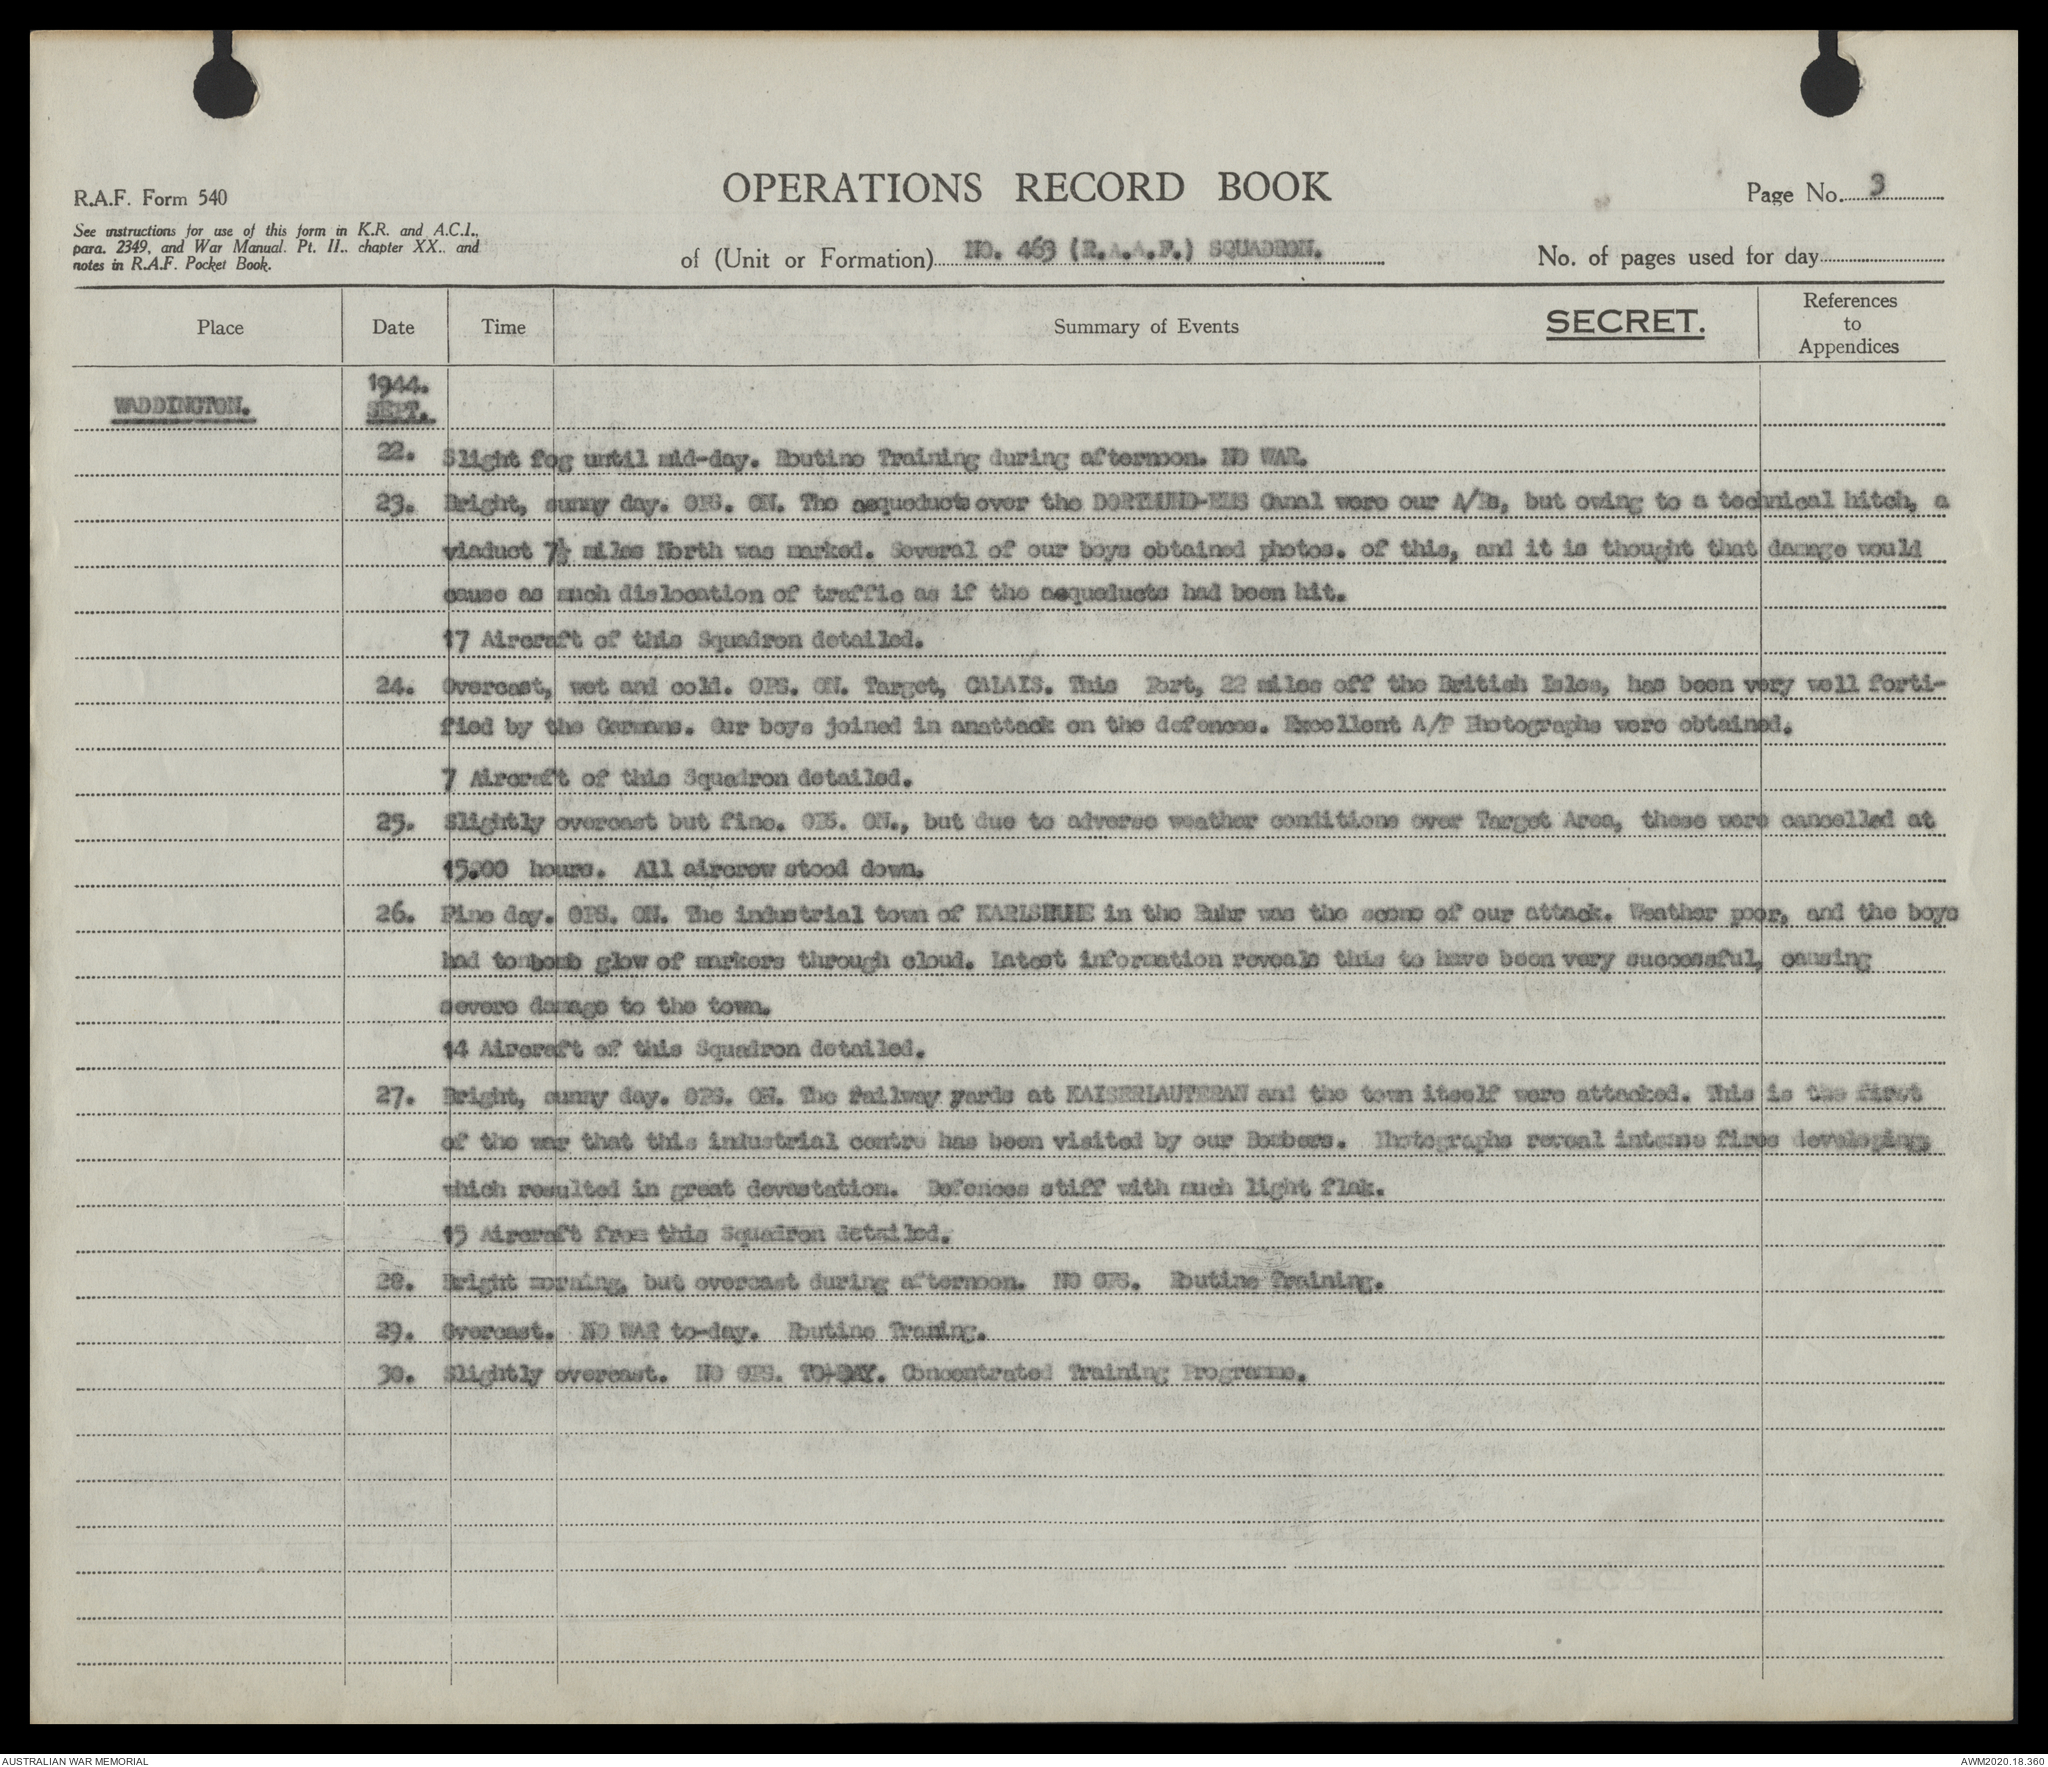 OPERATIONS RECORD BOOK
R.A.F. Form 540
Page No. 3
See instructions for use of this form in K.R. and A.C.I.,
para. 2349, and War Manual. Pt. II., chapter XX.. and
notes in R.A.F. Pocket Book.
of (Unit or Formation) NO. 463 (R.A.A.F.) SQUADRON.
No. of pages used for day
Place Date Time Summary of Events SECRET. References to Appendices
WADDINGTON. 1944. SEPT.
22. Slight fog until mid-day. Routine Training during afternoon. NO WAR.
23. Bright, sunny day. OPS. ON. The aequeducts over the DORTMUND-EMS Canal were our A/Ps, but owing to a technical hitch, a
viaduct 7½ miles North was marked. Several of our boys obtained photos. of this, and it is thought that damage would
cause as much dislocation of traffic as if the aequeducts had been hit.
17 Aircraft of this Squadron detailed.
24. Overcast, wet and cold. OPS. ON. Target, CALAIS. This Port, 22 miles off the British Isles, has been very well forti-
fied by the Germans. Our boys joined in anattack on the defences. Excellent A/P Photographs were obtained.
7 Aircraft of this Squadron detailed.
25. Slightly overcast but fine. OPS. ON., but due to adverse weather conditions over Target Area, these were cancelled at
15.00 hours. All aircrew stood down.
26. Fine day. OPS. ON. The industrial town of KARLSRUHE in the Ruhr was the scene of our attack. Weather poor, and the boys
had to bomb glow of markers through cloud. Latest information reveals this to have been very successful, causing
severe damage to the town.
14 Aircraft of this Squadron detailed.
27. Bright, sunny day. OPS. ON. The railway yards at KAISERLAUTERAN and the town itself were attacked. This is the first
of the war that this industrial centre has been visited by our Bombers. Photographs reveal intense fires developing,
which resulted in great devastation. Defences stiff with much light flak.
15 Aircraft from this Squadron detailed.
28. Bright morning, but overcast during afternoon. NO OPS. Routine Training.
29. Overcast. NO WAR to-day. Routine Traning.
30. Slightly overcast. NO OPS. TO-DAY. Concentrated Training Programme.
AUSTRALIAN WAR MEMORIAL
AWM2020.18.360